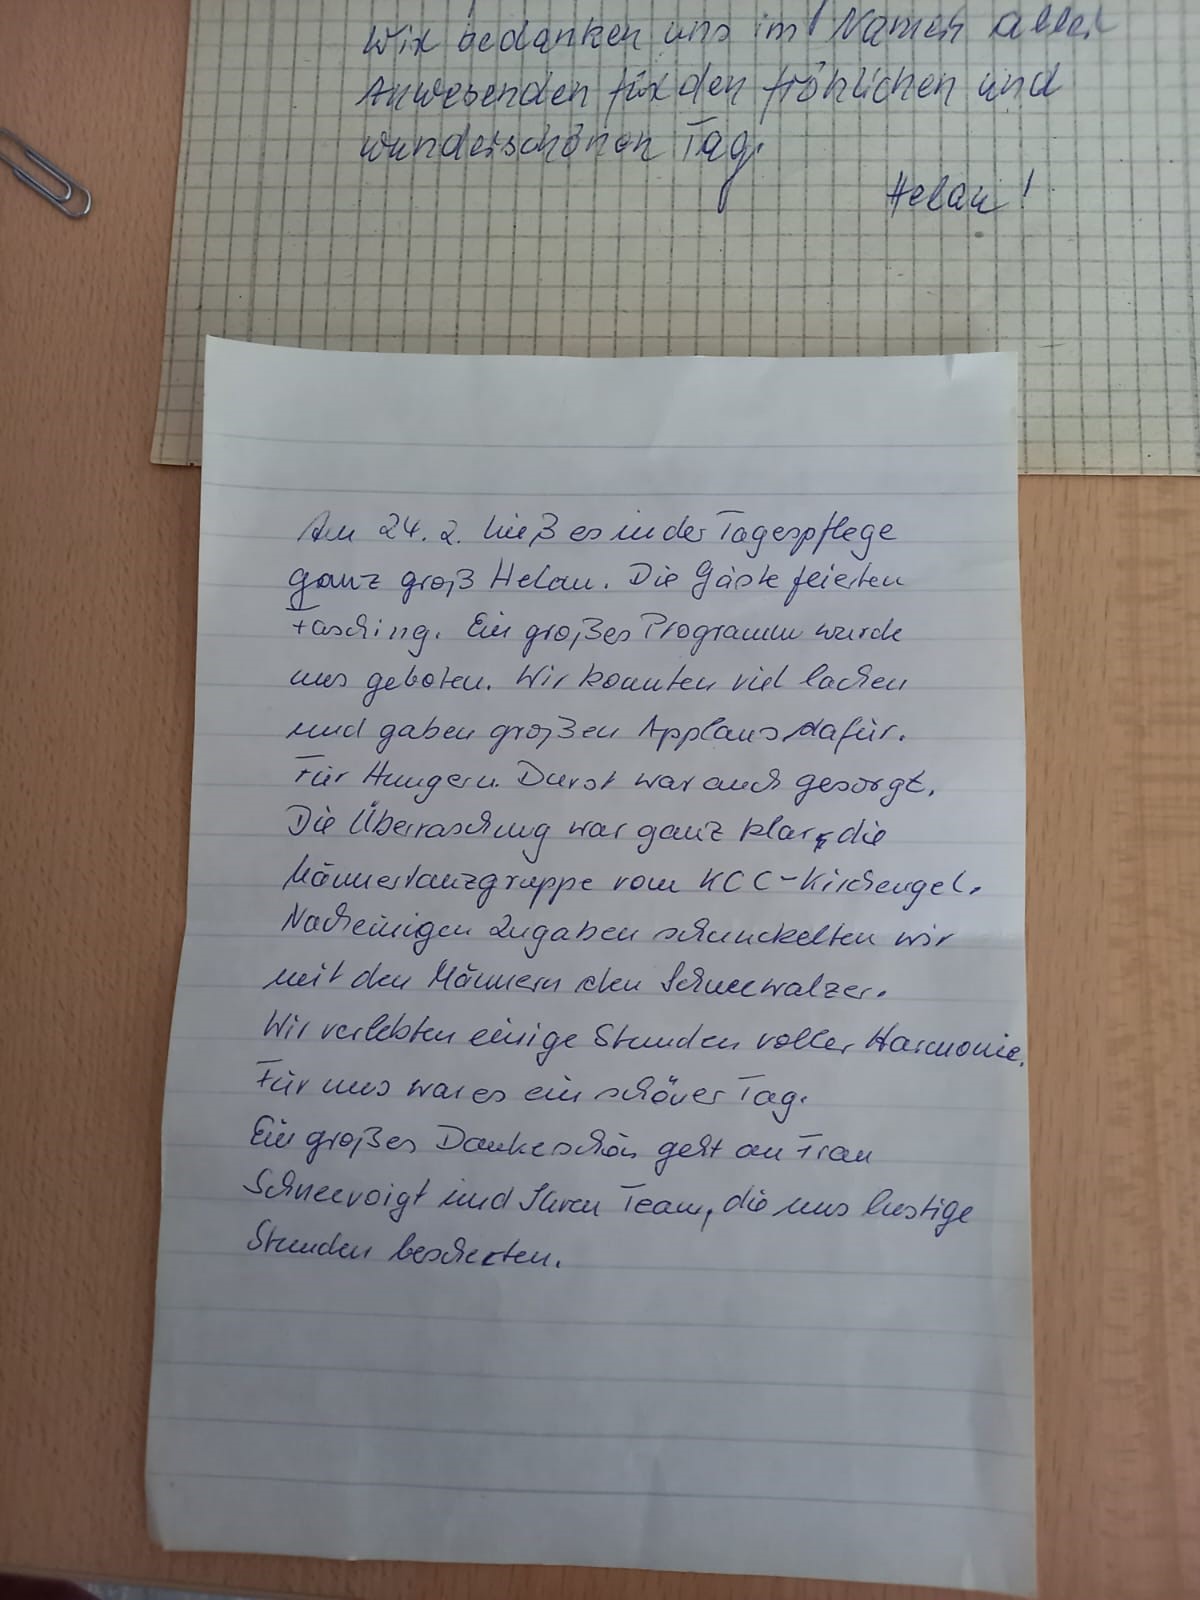 Wir bedanken uns im Namen aller
Anwesenden für den fröhlichen und
wunderschönen Tag.
Helau!
Am 24. 2. hieß es in der Tagespflege
ganz groß Helau. Die Gäste feierten
Fasching. Ein großes Programm wurde
uns geboten. Wir konnten viel lachen
und gaben großen Applaus dafür.
Für Hunger u. Durst war auch gesorgt.
Die Überraschung war ganz klar, die
Männertanzgruppe vom KCC-Kirchengel.
Nach einigen Zugaben schunckelten wir
mit den Männern den Schneewalzer.
Wir verlebten einige Stunden voller Harmonie.
Für uns war es ein schöner Tag.
Ein großes Dankeschön geht an Frau
Schneevoigt und Ihren Team, die uns lustige
Stunden bescherten.